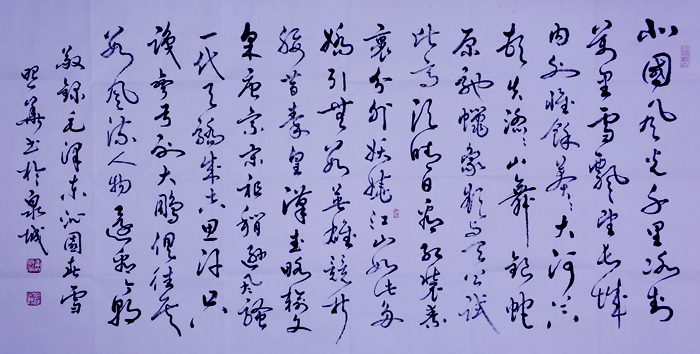 北國風光千里冰封
萬里雪飄望長城
内外惟餘莽莽大河上下
頓失滔滔山舞銀蛇
原馳蠟象欲與天公試
比高須晴日看紅裝素
裹分外妖嬈江山如此多
嬌引無數英雄競折
腰惜秦皇漢武略輸文
采唐宗宋祖稍遜風騷
一代天驕成吉思汗只
識彎弓射大鵰俱往矣
數風流人物還看今朝
敬錄毛澤東沁園春雪
華书於泉城